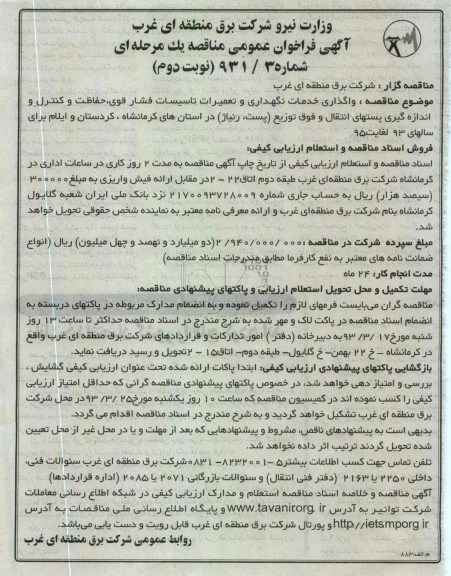 وزارت نیرو شرکت برق منطقه ای غرب
آگهی فراخوان عمومی مناقصه یك مرحله ای
شماره۳ / ۹۳۱ (نوبت دوم)
مناقصه گزار : شرکت برق منطقه ای غرب
موضوع مناقصه : واگذاری خدمات نگهداری و تعمیرات تاسیسات فشار قوی،حفاظت و کنترل و
اندازه گیری پستهای انتقال و فوق توزیع (پست، رنیاژ) در استان های کرمانشاه ، کردستان و ایلام برای
سالهای ۹۳ لغایت۹۵
فروش اسناد مناقصه و استعلام ارزیابی کیفی:
اسناد مناقصه و استعلام ارزیابی کیفی از تاریخ چاپ آگهی مناقصه به مدت ۲ روز کاری در ساعات اداری در
کرمانشاه شرکت برق منطقه‌ای غرب طبقه دوم اتاق۲۲ - ۲در مقابل ارائه فیش واریزی به مبلغ۳۰۰۰۰۰
(سیصد هزار) ریال به حساب جاری شماره ۲۱۷۰۰۹۳۷۲۸۰۰۹ نزد بانک ملی ایران شعبه گلایول
کرمانشاه بنام شرکت برق منطقه‌ای غرب و ارائه معرفی نامه معتبر به نماینده شخص حقوقی تحویل خواهد
شد.
مبلغ سپرده شرکت در مناقصه :۲/۹۴۰/۰۰۰/۰۰۰(دو میلیارد و نهصد و چهل میلیون) ریال (انواع
ضمانت نامه های معتبر به نفع کارفرما مطابق مندرجات اسناد مناقصه)
مدت انجام کار: ۲۴ ماه
مهلت تکمیل و محل تحویل استعلام ارزیابی و پاکتهای پیشنهادی مناقصه:
مناقصه گران می‌بایست فرمهای لازم را تکمیل نموده و به انضمام مدارک مربوطه در پاکتهای دربسته به
انضمام اسناد مناقصه در پاکت لاک و مهر شده به شرح مندرج در اسناد مناقصه حداکثر تا ساعت ۱۳ روز
شنبه مورخ۱۷ /۳/ ۹۳به دبیرخانه (دفتر ) امور تدارکات و قراردادهای شرکت برق منطقه ای غرب واقع
در کرمانشاه – خ ۲۲ بهمن– خ گلایول– طبقه دوم– اتاق۱۵ - ۲تحویل و رسید دریافت نماید.
بازگشایی پاکتهای پیشنهادی ارزیابی کیفی: ابتدا پاکات ارائه شده تحت عنوان ارزیابی کیفی گشایش ،
بررسی و امتیاز دهی خواهد شد، در خصوص پاکتهای پیشنهادی مناقصه گرانی که حداقل امتیاز ارزیابی
کیفی را کسب نموده اند در کمیسیون مناقصه که ساعت ۱۰ روز یکشنبه مورخ۲۵ /۳/ ۹۳در محل شرکت
برق منطقه ای غرب تشکیل خواهد گردید و به شرح مندرج در اسناد مناقصه اقدام می گردد.
بدیهی است به پیشنهادهای ناقص، مشروط و پیشنهادهایی که بعد از مهلت و یا در محل غیر از محل تعیین
شده تحویل گردند ترتیب اثر داده نخواهد شد.
تلفن تماس جهت کسب اطلاعات بیشتر۵ -۸۲۳۲۰۰۱- ۰۸۳۱شرکت برق منطقه ای غرب سئوالات فنی،
داخلی ۲۲۵۰ یا ۲۱۶۳ (دفتر فنی انتقال) و سئوالات بازرگانی ۲۰۷۱ یا ۲۰۸۵ (اداره قراردادها)
آگهی مناقصه و خلاصه اسناد مناقصه استعلام و مدارک ارزیابی کیفی در شبکه اطلاع رسانی معاملات
شرکت توانیر به آدرس www.tavanir.org. ir و پایگاه اطلاع رسانی ملی مناقصات به آدرس
http://iets.mporg ir و پورتال شرکت برق منطقه ای غرب قابل رویت و دست یابی می‌باشد.
روابط عمومی شرکت برق منطقه ای غرب
م.الف:۸۸۳